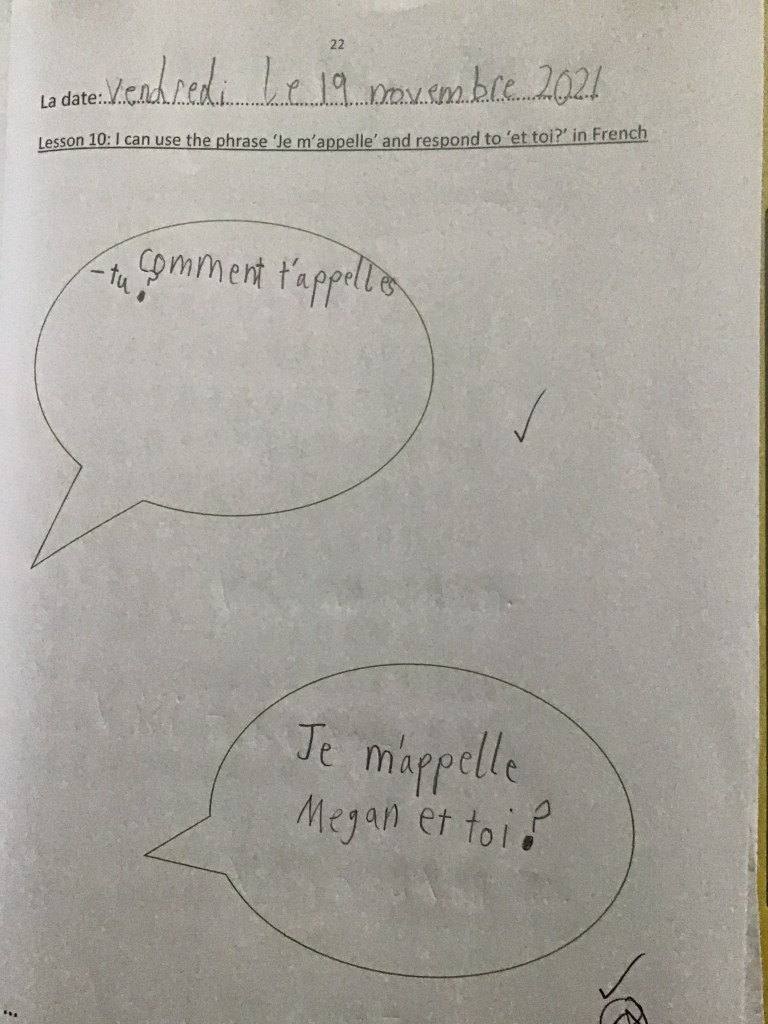 22
La date: Vendredi le 19 novembre 2021
Lesson 10: I can use the phrase 'Je m'appelle' and respond to 'et toi?' in French
Comment t'appelles
-tu?
Je m'appelle
Megan et toi?
...